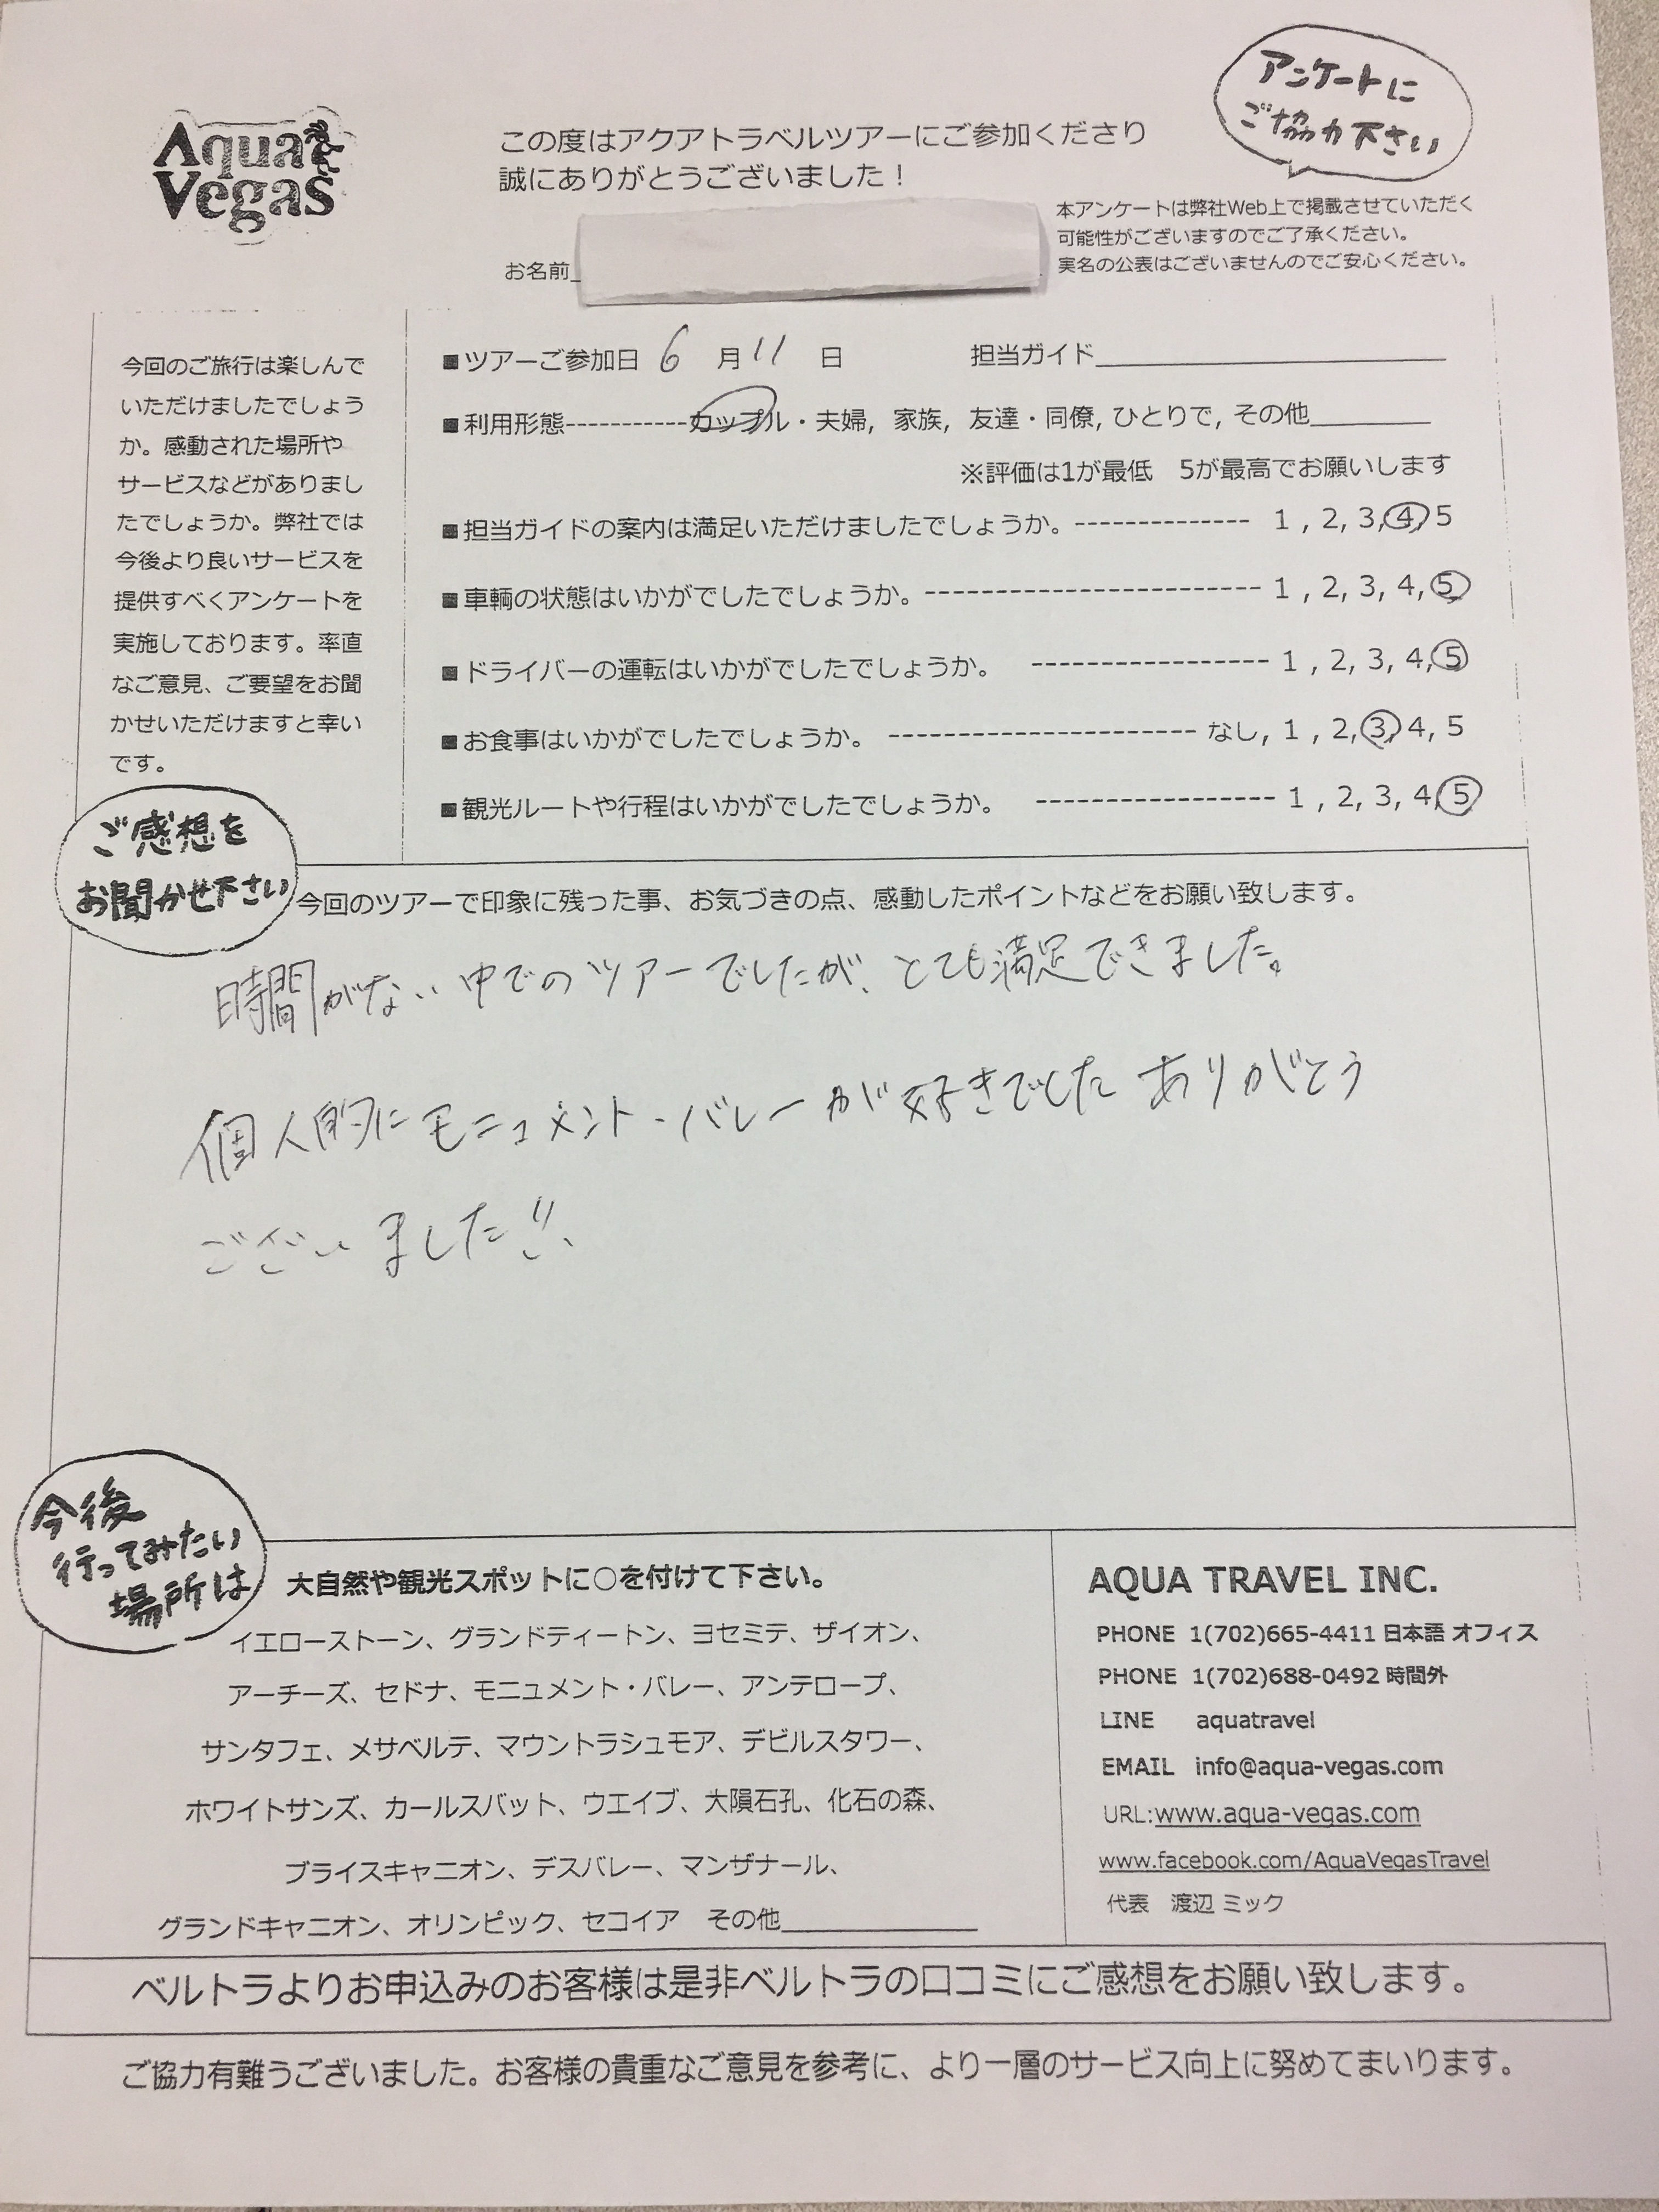 Aqua
Vegas
この度はアクアトラベルツアーにご参加くださり
誠にありがとうございました！
アンケートに
ご協力下さい
本アンケートは弊社Web上で掲載させていただく
可能性がございますのでご了承ください。
実名の公表はございませんのでご安心ください。
お名前
今回のご旅行は楽しんで
いただけましたでしょう
か。感動された場所や
サービスなどがありまし
たでしょうか。弊社では
今後より良いサービスを
提供すべくアンケートを
実施しております。率直
なご意見、ご要望をお聞
かせいただけますと幸い
です。
■ツアーご参加日 6 月 11 日 担当ガイド
■利用形態-----------カップル・夫婦, 家族, 友達・同僚, ひとりで, その他
※評価は1が最低 5が最高でお願いします
■担当ガイドの案内は満足いただけましたでしょうか。-------------- 1 , 2, 3, 4, 5
■車輌の状態はいかがでしたでしょうか。--------------------------- 1 , 2, 3, 4, 5
■ドライバーの運転はいかがでしたでしょうか。 ------------------- 1 , 2, 3, 4, 5
■お食事はいかがでしたでしょうか。 ------------------------ なし, 1 , 2, 3, 4, 5
■観光ルートや行程はいかがでしたでしょうか。 ------------------- 1 , 2, 3, 4, 5
ご感想を
お聞かせ下さい
今回のツアーで印象に残った事、お気づきの点、感動したポイントなどをお願い致します。
時間がない中でのツアーでしたが、とても満足できました。
個人的にモニュメント・バレーが好きでした ありがとう
ございました!!
今後
行ってみたい
場所は
大自然や観光スポットに○を付けて下さい。
イエローストーン、グランドティートン、ヨセミテ、ザイオン、
アーチーズ、セドナ、モニュメント・バレー、アンテロープ、
サンタフェ、メサベルテ、マウントラシュモア、デビルスタワー、
ホワイトサンズ、カールスバット、ウエイブ、大隕石孔、化石の森、
ブライスキャニオン、デスバレー、マンザナール、
グランドキャニオン、オリンピック、セコイア その他
AQUA TRAVEL INC.
PHONE 1(702)665-4411 日本語 オフィス
PHONE 1(702)688-0492 時間外
LINE aquatravel
EMAIL info@aqua-vegas.com
URL:www.aqua-vegas.com
www.facebook.com/AquaVegasTravel
代表 渡辺 ミック
ベルトラよりお申込みのお客様は是非ベルトラの口コミにご感想をお願い致します。
ご協力有難うございました。お客様の貴重なご意見を参考に、より一層のサービス向上に努めてまいります。